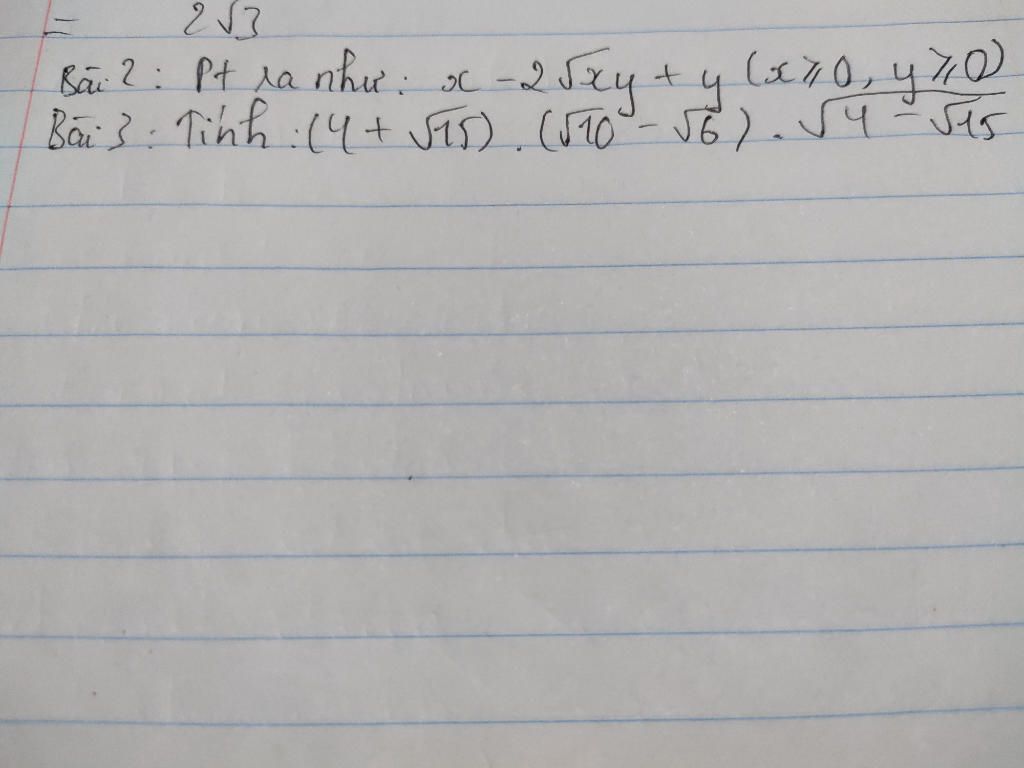 = 2√3
Bài 2: Pt ra như: x - 2√xy + y (x ⩾ 0, y ⩾ 0)
Bài 3: Tính: (4 + √15) . (√10 - √6) . √(4 - √15)